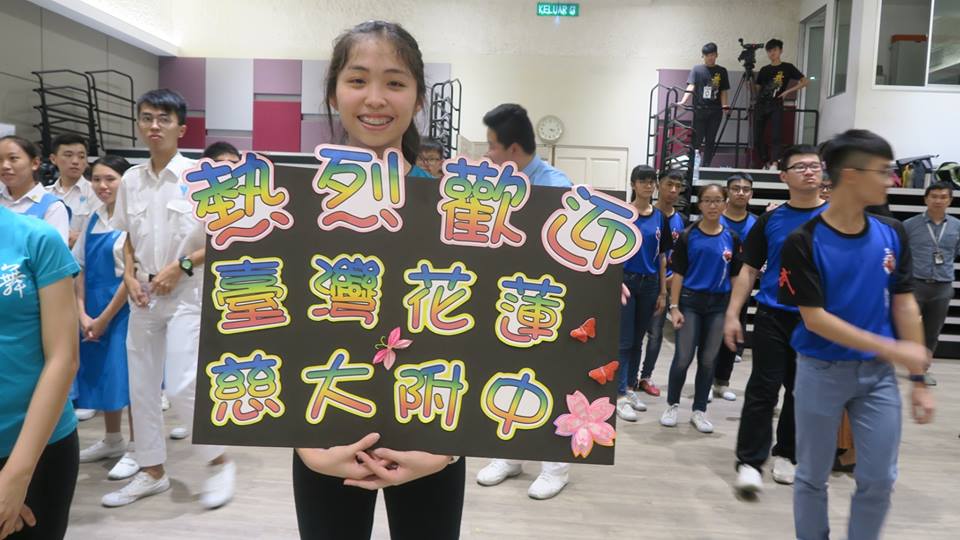 KELUAR
熱烈歡迎
臺灣花蓮
慈大附中
舞
武